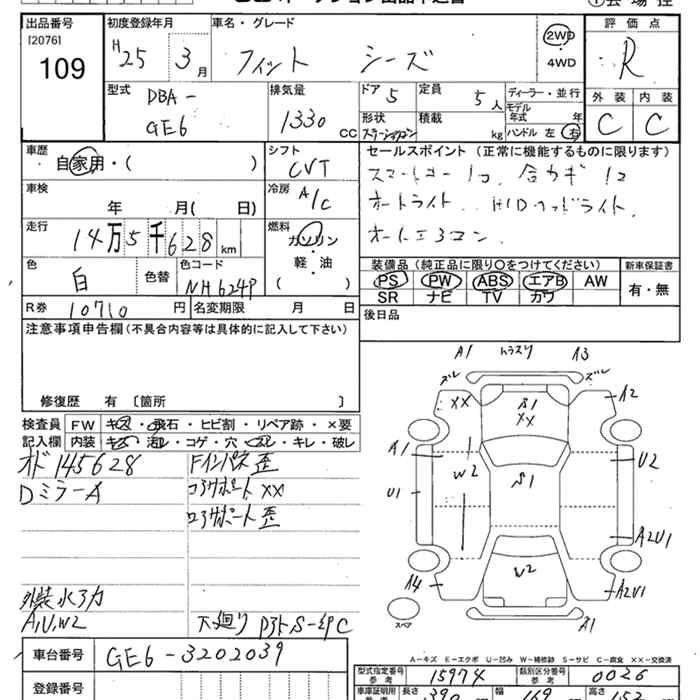 出品番号 初度登録年月 車名・グレード 評価点
[2076]
109
H25 3月 フィット シーズ
2WD
・
4WD
R
型式 排気量 ドア 定員 ディーラー・並行 外装 内装
DBA-
GE6
1330 CC
5 5人
モデル年式 年
形状 積載 kg ハンドル 左 右
C C
車歴 シフト セールスポイント(正常に機能するものに限ります)
自家用・( )
CVT
車検 年 月( 日)
冷房 A/C
オートライト HIDヘッドライト
走行 14万5千628km
燃料 ガソリン
軽・油
( )
オートエアコン
色 白 色替 色コード NH624P
装備品(純正品に限り○をつけてください) 新車保証書
PS PW ABS エアB AW
SR ナビ TV カワ
有・無
R券 10710円 名変期限 月 日
後日品
注意事項申告欄(不具合内容等は具体的に記入して下さい)
修復歴 有〔箇所 〕
検査員 FW キズ・飛石・ヒビ割・リペア跡・×要
記入欄 内装 キズ・汚レ・コゲ・穴・スレ・キレ・破レ
オド145628 Fインパネ歪
Dミラー A コアサポート××
ロアサポート歪
A,U,W2 下廻り
A1 A3
ズレ ズレ
×× S1 ×× A2
A1 W2 S1 U2
U1
W2 A2U1
A4 A2U1
スペア A1
A-キズ E-エクボ U-凹み W-補修跡 S-サビ C-腐食 ××-交換済
車台番号 GE6-3202039
登録番号
型式指定番号 参考 15974 類別区分番号 参考 0026
車庫証明用 参考 長さ 390 幅 169 高さ 152